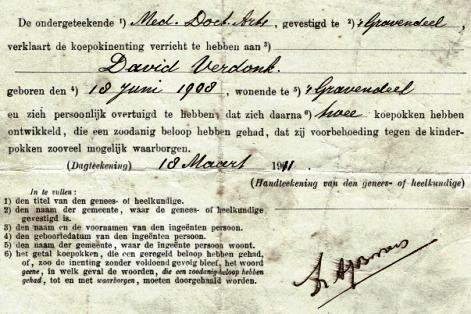 De ondergeteekende 1) Med. Doct. Arts, gevestigd te 2) 's Gravendeel,
verklaart de koepokinenting verricht te hebben aan 3)
David Verdonk.
geboren den 4) 18 Juni 1908, wonende te 5) 's Gravendeel
en zich persoonlijk overtuigd te hebben, dat zich daarna 6) twee koepokken hebben
ontwikkeld, die een zoodanig beloop hebben gehad, dat zij voorbehoeding tegen de kinder-
pokken zooveel mogelijk waarborgen.
(Dagteekening) 18 Maart 1911.
(Handteekening van den genees- of heelkundige)
In te vullen:
1) den titel van den genees- of heelkundige.
2) den naam der gemeente, waar de genees- of heelkundige
gevestigd is.
3) den naam en de voornamen van den ingeënten persoon.
4) den geboortedatum van den ingeënten persoon.
5) den naam der gemeente, waar de ingeënte persoon woont.
6) het getal koepokken, die een geregeld beloop hebben gehad,
of, zoo de inenting zonder voldoend gevolg bleef, het woord
geene, in welk geval de woorden, die een zoodanig beloop hebben
gehad, tot en met waarborgen, moeten doorgehaald worden.